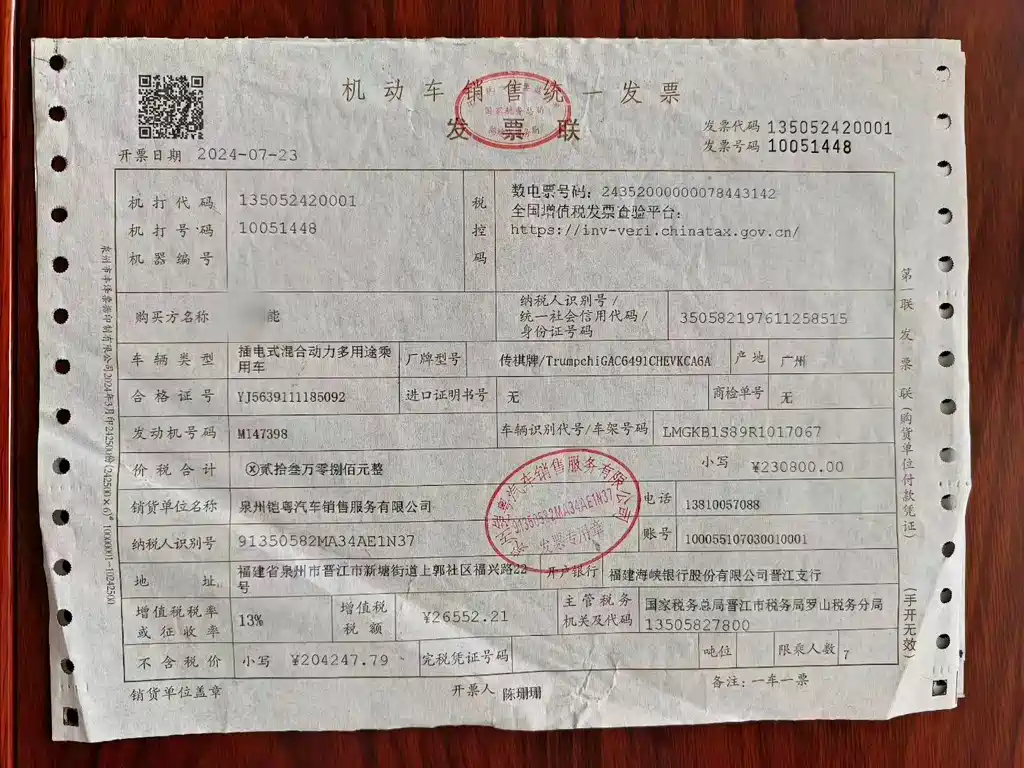 机动车销售统一发票
发票联
发票代码 135052420001
发票号码 10051448
开票日期 2024-07-23
机打代码 135052420001
机打号码 10051448
机器编号
税控码
数电票号码：24352000000078443142
全国增值税发票查验平台：
https://inv-veri.chinatax.gov.cn/
购买方名称 能
纳税人识别号/
统一社会信用代码/
身份证号码
350582197611258515
车辆类型 插电式混合动力多用途乘
用车
厂牌型号 传祺牌/TrumpchiGAC6491CHEVKCA6A 产地 广州
合格证号 YJ5639111185092 进口证明书号 无 商检单号 无
发动机号码 M147398 车辆识别代号/车架号码 LMGKB1S89R1017067
价税合计 ⓧ贰拾叁万零捌佰元整 小写 ¥230800.00
销货单位名称 泉州铠粤汽车销售服务有限公司 电话 13810057088
纳税人识别号 91350582MA34AE1N37 账号 100055107030010001
地址 福建省泉州市晋江市新塘街道上郭社区福兴路22
号
开户银行 福建海峡银行股份有限公司晋江支行
增值税税率
或征收率
13%
增值税
税额
¥26552.21
主管税务
机关及代码
国家税务总局晋江市税务局罗山税务分局
13505827800
不含税价 小写 ¥204247.79 完税凭证号码 吨位 限乘人数 7
销货单位盖章 开票人 陈珊珊 备注：一车一票
第一联 发票联（购货单位付款凭证）
（手开无效）
汽车销售服务有限公司
91350582MA34AE1N37
发票专用章